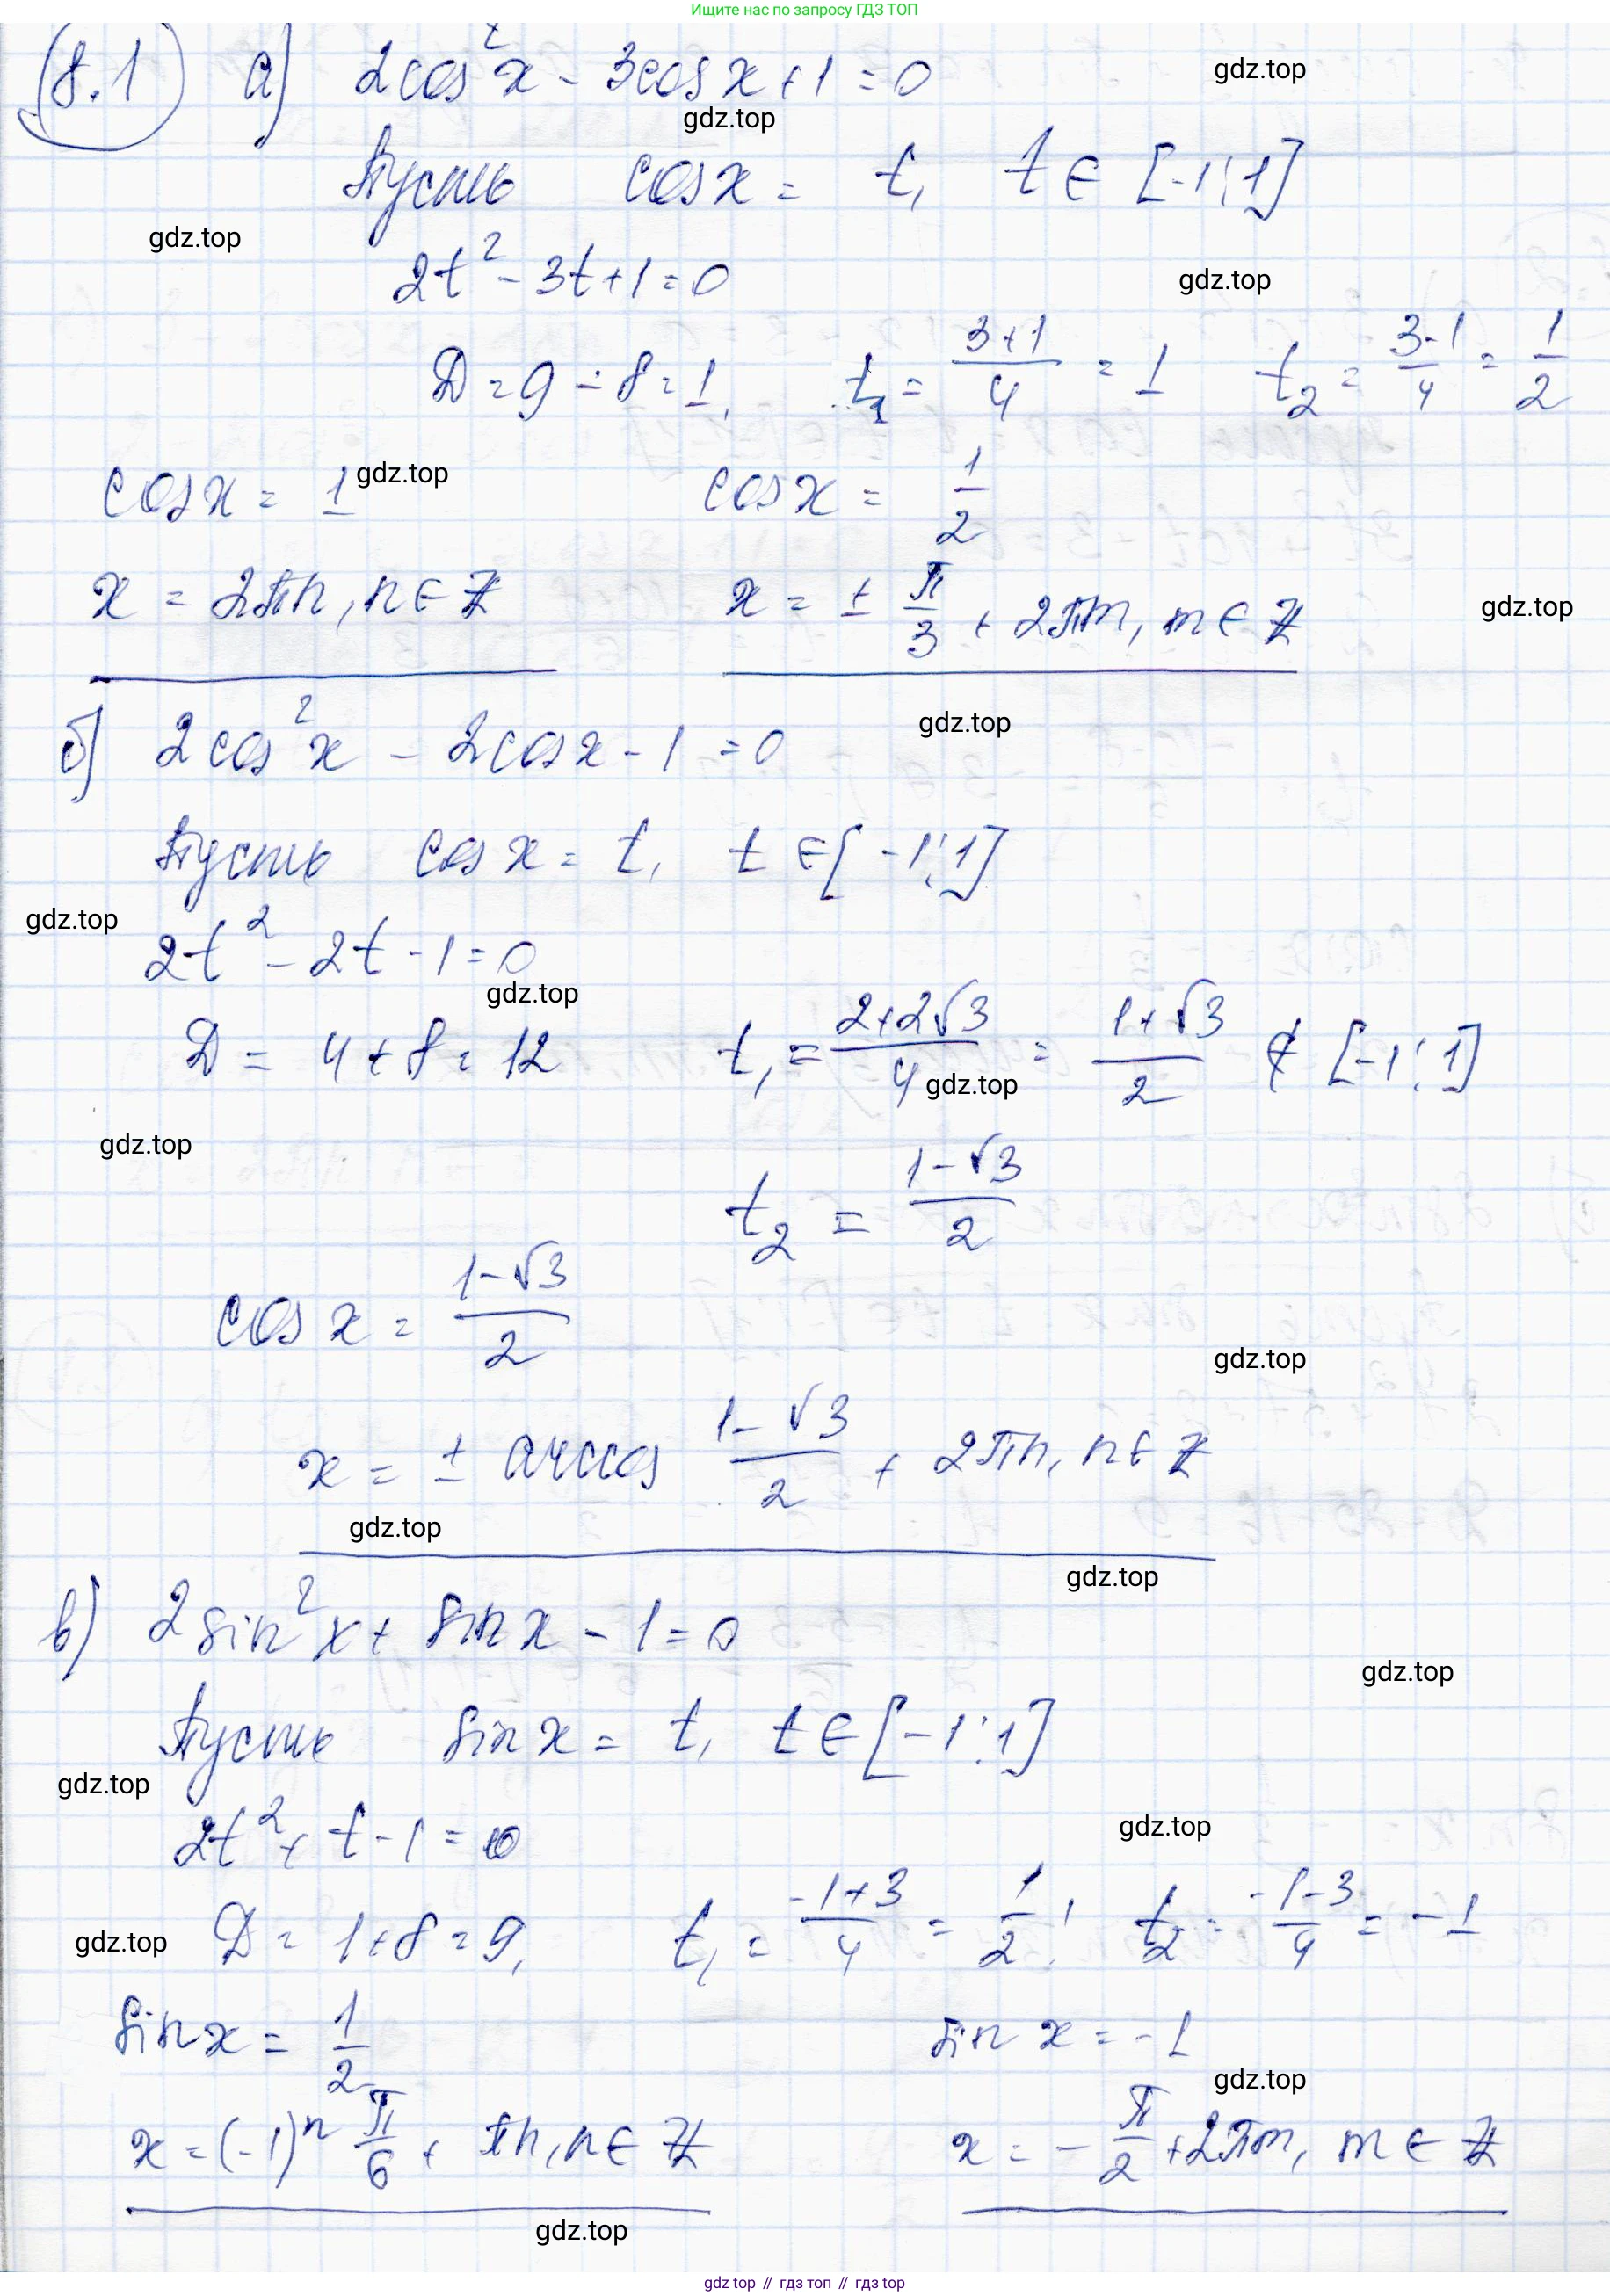 Ищите нас по запросу ГДЗ ТОП
8.1 а) 2cos²x - 3cosx + 1 = 0
gdz.top
gdz.top
Пусть cosx = t, t ∈ [-1; 1]
gdz.top
2t² - 3t + 1 = 0
gdz.top
D = 9 - 8 = 1, t₁ = (3+1)/4 = 1 t₂ = (3-1)/4 = 1/2
cosx = 1 gdz.top cosx = 1/2
x = 2πn, n ∈ Z x = ± π/3 + 2πm, m ∈ Z gdz.top
б) 2cos²x - 2cosx - 1 = 0
gdz.top
Пусть cosx = t, t ∈ [-1; 1]
gdz.top
2t² - 2t - 1 = 0
gdz.top
D = 4 + 8 = 12 t₁ = (2+2√3)/4 = (1+√3)/2 ∉ [-1; 1]
gdz.top
gdz.top
t₂ = (1-√3)/2
cos x = (1-√3)/2
gdz.top
x = ± arccos (1-√3)/2 + 2πn, n ∈ Z
gdz.top
gdz.top
в) 2sin²x + sinx - 1 = 0
gdz.top
Пусть sinx = t, t ∈ [-1; 1]
gdz.top
2t² + t - 1 = 0
gdz.top
D = 1 + 8 = 9, t₁ = (-1+3)/4 = 1/2; t₂ = (-1-3)/4 = -1
gdz.top
sinx = 1/2 sin x = -1
gdz.top
x = (-1)ⁿ π/6 + πn, n ∈ Z x = - π/2 + 2πm, m ∈ Z
gdz.top
gdz top // гдз топ // гдз top